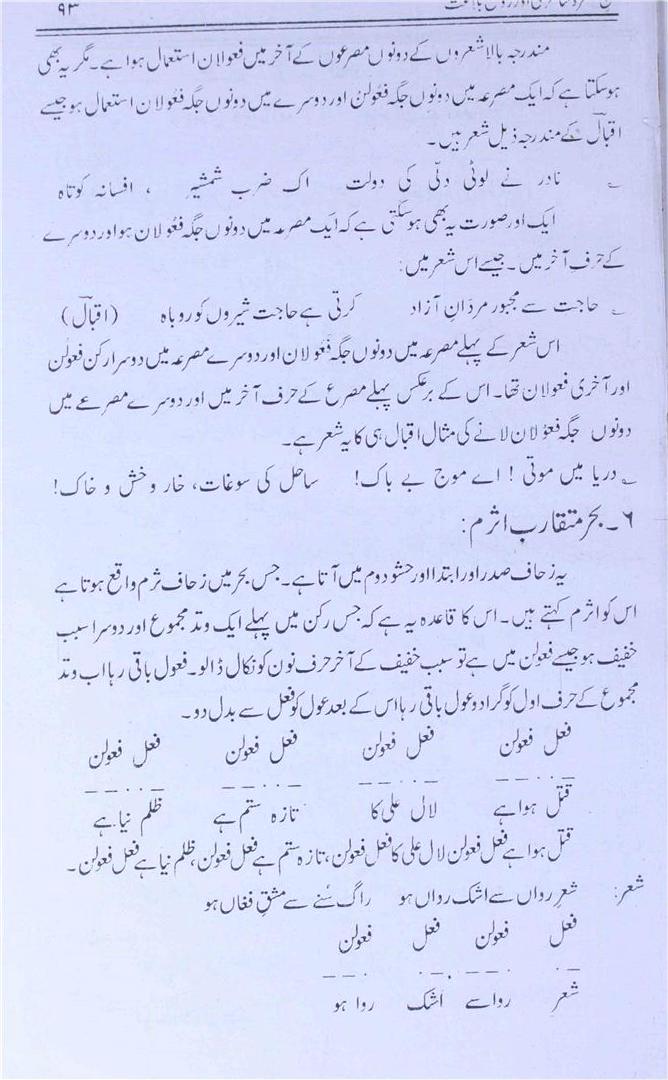 ۹۳
مندرجہ بالا شعروں کے دونوں مصرعوں کے آخر میں فعولان استعمال ہوا ہے۔ مگر یہ بھی
ہوسکتا ہے کہ ایک مصرعہ میں دونوں جگہ فعولن اور دوسرے میں دونوں جگہ فعولان استعمال ہو جیسے
اقبالؔ کے مندرجہ ذیل شعر ہیں۔
؎ نادر نے لوٹی دلّی کی دولت اک ضرب شمشیر ، افسانہ کوتاہ
ایک اور صورت یہ بھی ہوسکتی ہے کہ ایک مصرعہ میں دونوں جگہ فعولان ہو اور دوسرے
کے حرف آخر میں۔ جیسے اس شعر میں:
؎ حاجت سے مجبور مردانِ آزاد کرتی ہے حاجت شیروں کو روباہ (اقبالؔ)
اس شعر کے پہلے مصرعہ میں دونوں جگہ فعولان اور دوسرے مصرعہ میں دوسرا رکن فعولن
اور آخری فعولان تھا۔ اس کے برعکس پہلے مصرع کے حرف آخر میں اور دوسرے مصرعے میں
دونوں جگہ فعولان لانے کی مثال اقبال ہی کا یہ شعر ہے۔
؎ دریا میں موتی ! اے موج بے باک! ساحل کی سوغات، خار و خش و خاک!
۶۔ بحر متقارب اثرم:
یہ زحاف صدر اور ابتدا اور حشو دوم میں آتا ہے۔ جس بحر میں زحاف ثرم واقع ہوتا ہے
اس کو اثرم کہتے ہیں۔ اس کا قاعدہ یہ ہے کہ جس رکن میں پہلے ایک وتد مجموع اور دوسرا سبب
خفیف ہو جیسے فعولن میں ہے تو سبب خفیف کے آخر حرف نون کو نکال ڈالو۔ فعول باقی رہا اب وتد
مجموع کے حرف اول کو گرا دو عول باقی رہا اس کے بعد عول کو فعل سے بدل دو۔
فعل فعولن فعل فعولن فعل فعولن فعل فعولن
قتل ہوا ہے لال علی کا تازہ ستم ہے ظلم نیا ہے
قتل ہوا ہے فعل فعولن لال علی کا فعل فعولن، تازہ ستم ہے فعل فعولن، ظلم نیا ہے فعل فعولن۔
شعر: شعر رواں سے اشک رواں ہو راگ سُنے سے مشقِ فغاں ہو
فعل فعولن فعل فعولن
شعر رواسے اشک روا ہو